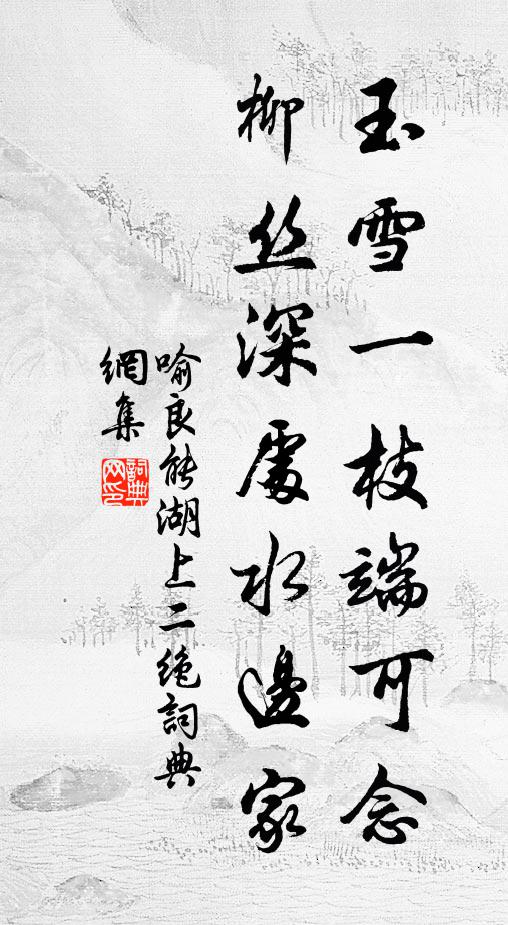 玉雪一枝端可念
柳丝深處水邊家
喻良能湖上二绝詞典
網集
詞典
网印